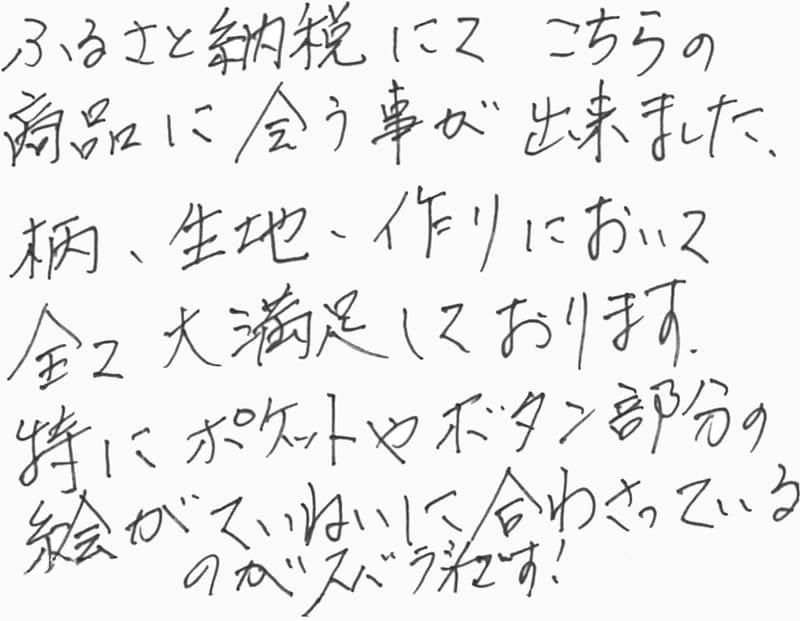 ふるさと納税にて こちらの
商品に会う事が出来ました、
柄、生地、作りにおいて
全て大満足しております.
特にポケットやボタン部分の
絵がていねいに合わさっている
のがスバラ です!